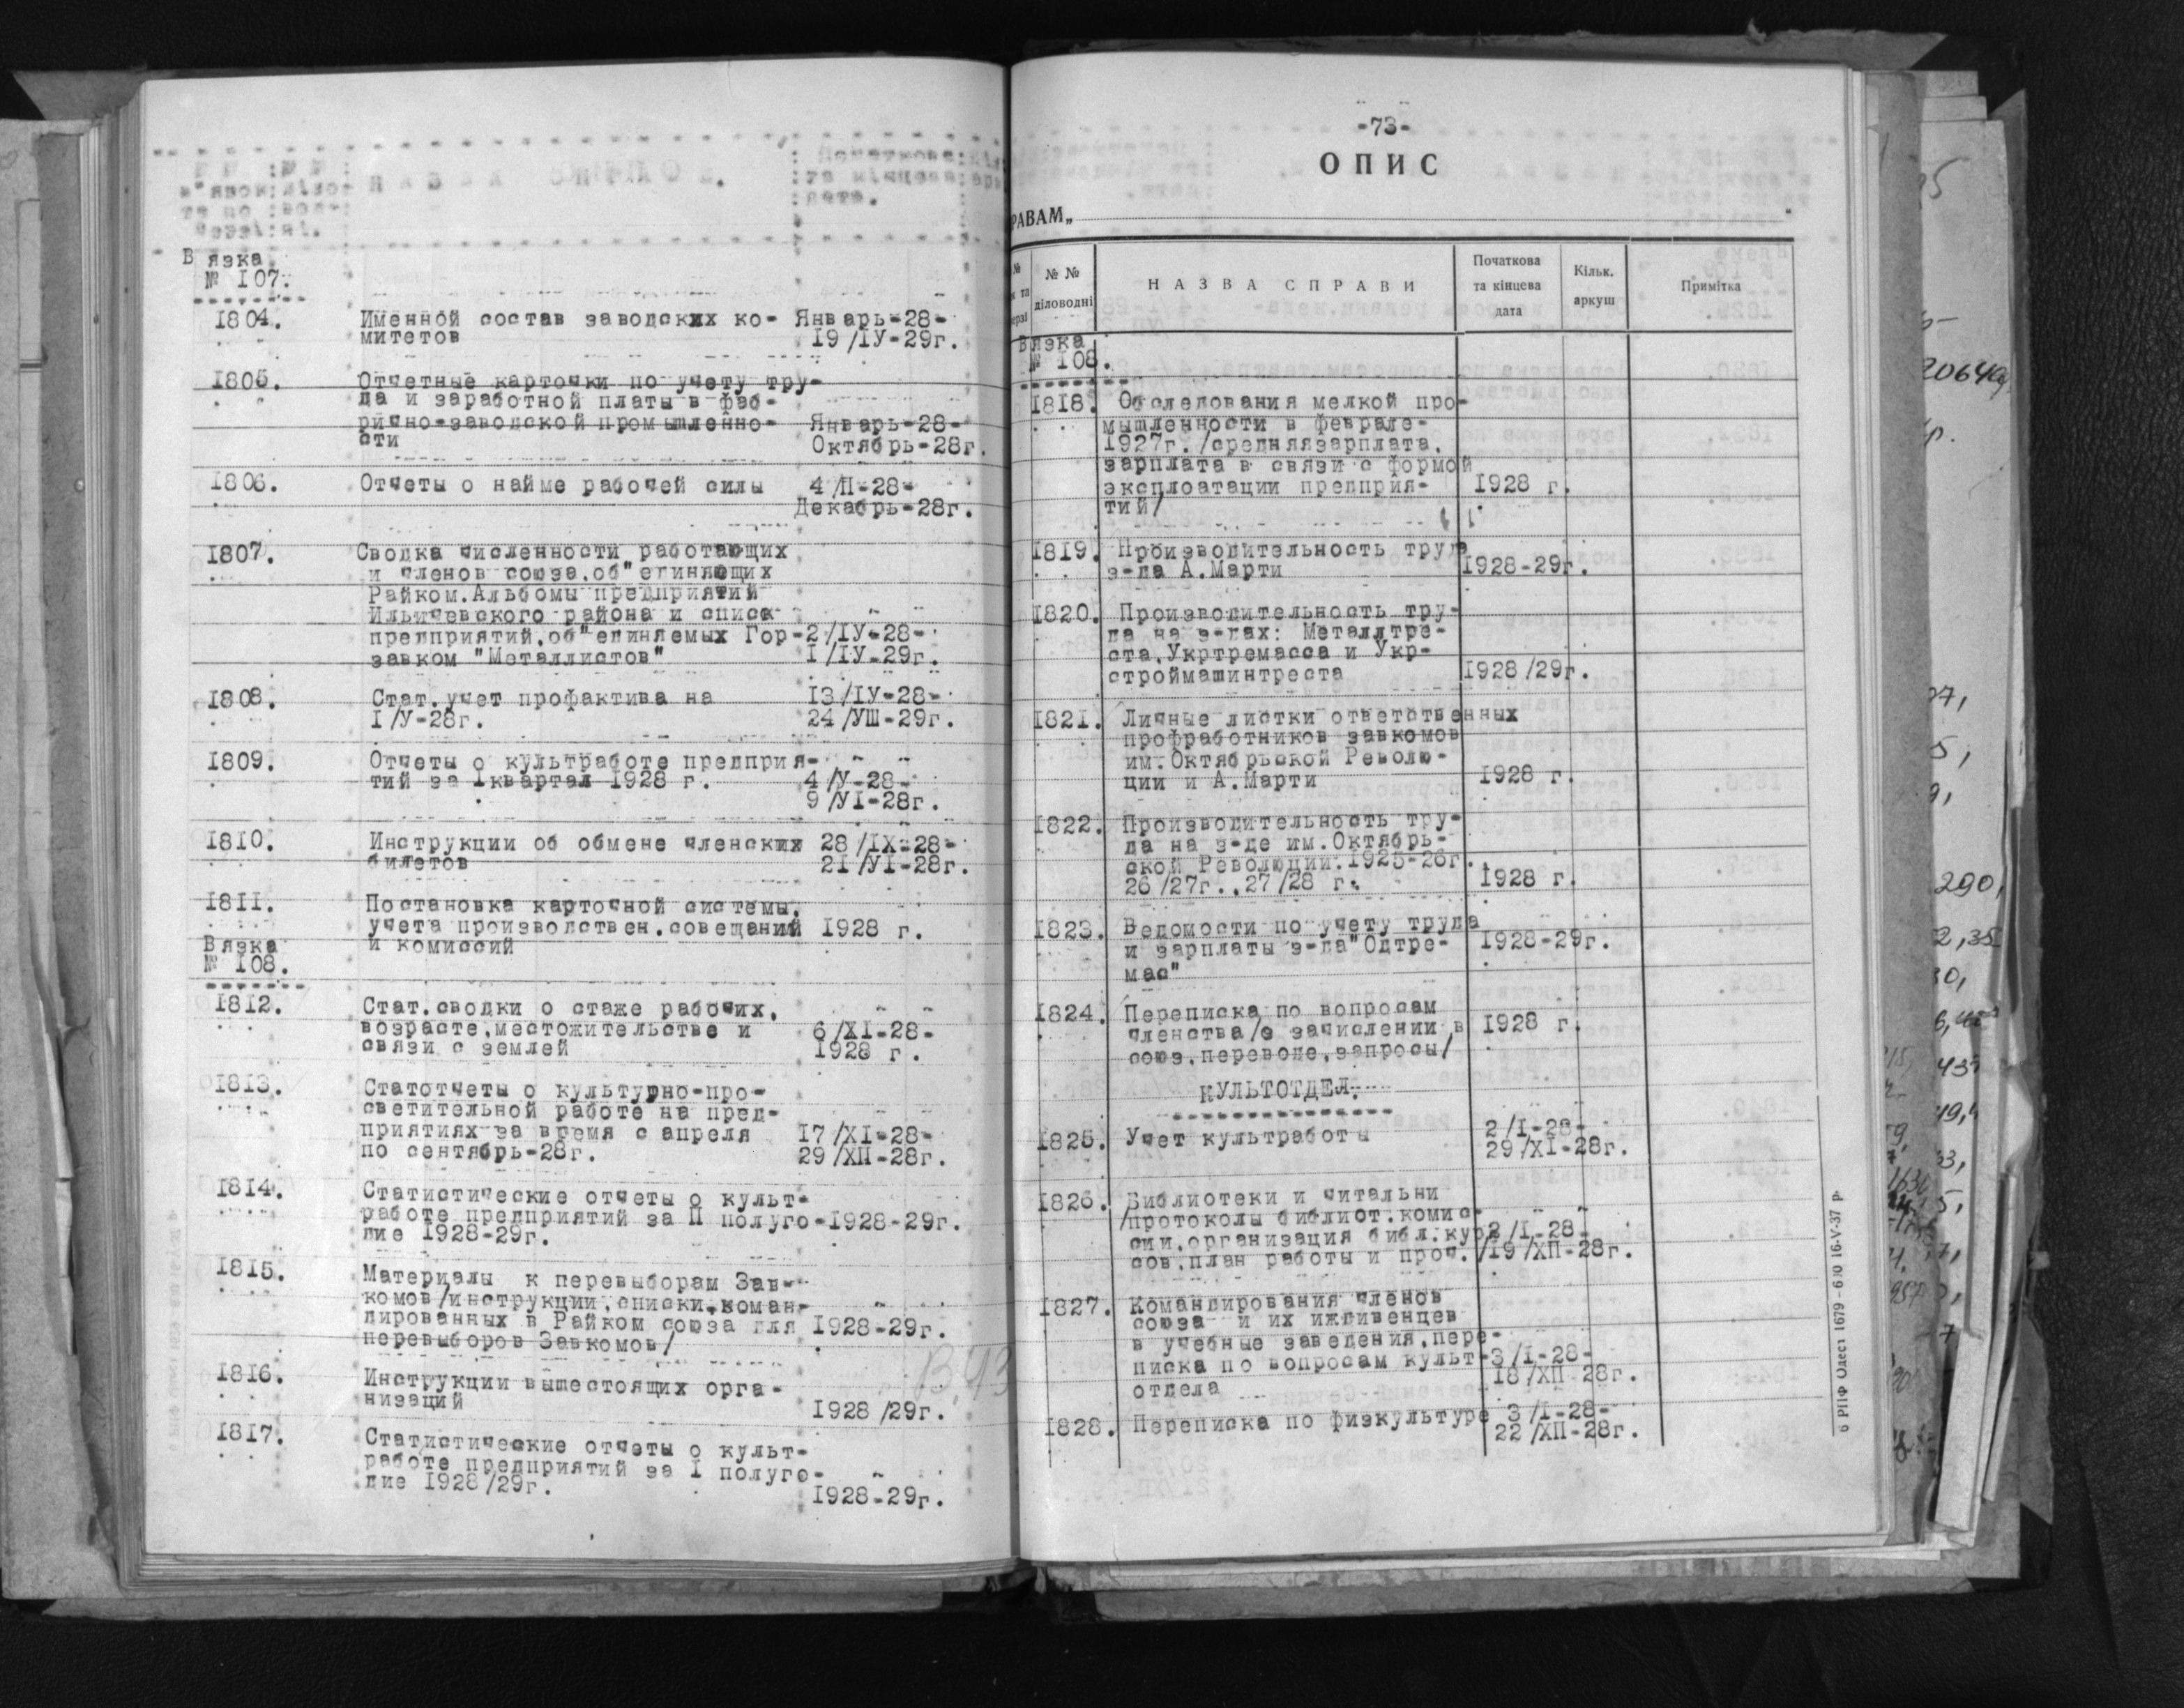 В язка
№ 107.
1804. Именной состав заводских ко- Январь-28-
митетов 19/IУ-29г.
1805. Отчетные карточки по учету тру-
да и заработной платы в фаб-
рично-заводской промышленно- Январь-28-
сти Октябрь-28г.
1806. Отчеты о найме рабочей силы 4/П-28-
Декабрь-28г.
1807. Сводка численности работающих
и членов союза,об"единяющих
Райком.Альбомы предприятий
Ильичевского района и списк
предприятий,об"единяемых Гор-2/IУ-28-
завком "Металлистов" I/IУ-29г.
1808. Стат.учет профактива на 13/IУ-28-
I/У-28г. 24/УШ-29г.
1809. Отчеты о культработе предприя-
тий за Iквартал 1928 г. 4/У-28-
9/УI-28г.
1810. Инструкции об обмене членских 28/IX-28-
билетов 21/УI-28г.
1811. Постановка карточной системы,
учета производствен.совещаний 1928 г.
и комиссий
Вязка
№ 108.
1812. Стат.сводки о стаже рабочих,
возрасте,местожительстве и 6/XI-28-
связи с землей 1928 г.
1813. Статотчеты о культурно-про-
светительной работе на пред-
приятиях за время с апреля 17/XI-28-
по сентябрь-28г. 29/ХП-28г.
1814. Статистические отчеты о культ-
работе предприятий за П полуго-1928-29г.
дие 1928-29г.
1815. Материалы к перевыборам Зав-
комов/инструкции,списки,коман-
дированных в Райком союза для 1928-29г.
перевыборов Завкомов/
1816. Инструкции вышестоящих орга-
низаций 1928/29г.
1817. Статистические отчеты о культ-
работе предприятий за I полуго-
дие 1928/29г.
1928-29г.
-73-
ОПИС
РАВАМ„
№ № №
к та діловодні
ерзі
НАЗВА СПРАВИ
Початкова
та кінцева
дата
Кільк.
аркуш
Примітка
Вязка
№ 108.
1818. Обследования мелкой про-
мышленности в феврале-
1927г./средняязарплата,
зарплата в связи с формой
эксплоатации предприя- 1928 г.
тий/
1819. Производительность труда
з-да А.Марти 1928-29г.
1820. Производительность тру-
да на з-дах: Металлтре-
ста,Укртремасса и Укр-
строймашинтреста 1928/29г.
1821. Личные листки ответственных
профработников завкомов
им.Октябрьской Револю-
ции и А.Марти 1928 г.
1822. Производительность тру-
да на з-де им.Октябрь-
ской Революции.1925-26г.
26/27г.,27/28 г. 1928 г.
1823. Ведомости по учету труда
и зарплаты з-да"Одтре- 1928-29г.
мас"
1824. Переписка по вопросам
членства/о зачислении в 1928 г.
союз,переводе,запросы/
КУЛЬТОТДЕЛ.
1825. Учет культработы 2/I-28-
29/XI-28г.
1826. Библиотеки и читальни
/протоколы библиот.комис-
сии,организация библ.кур2/I-28-
сов,план работы и проч./19/ХП-28г.
1827. Командирования членов
союза и их иждивенцев
в учебные заведения,пере-
писка по вопросам культ-3/I-28-
отдела 18/ХП-28г.
1828. Переписка по физкультуре 3/I-28-
22/ХП-28г.